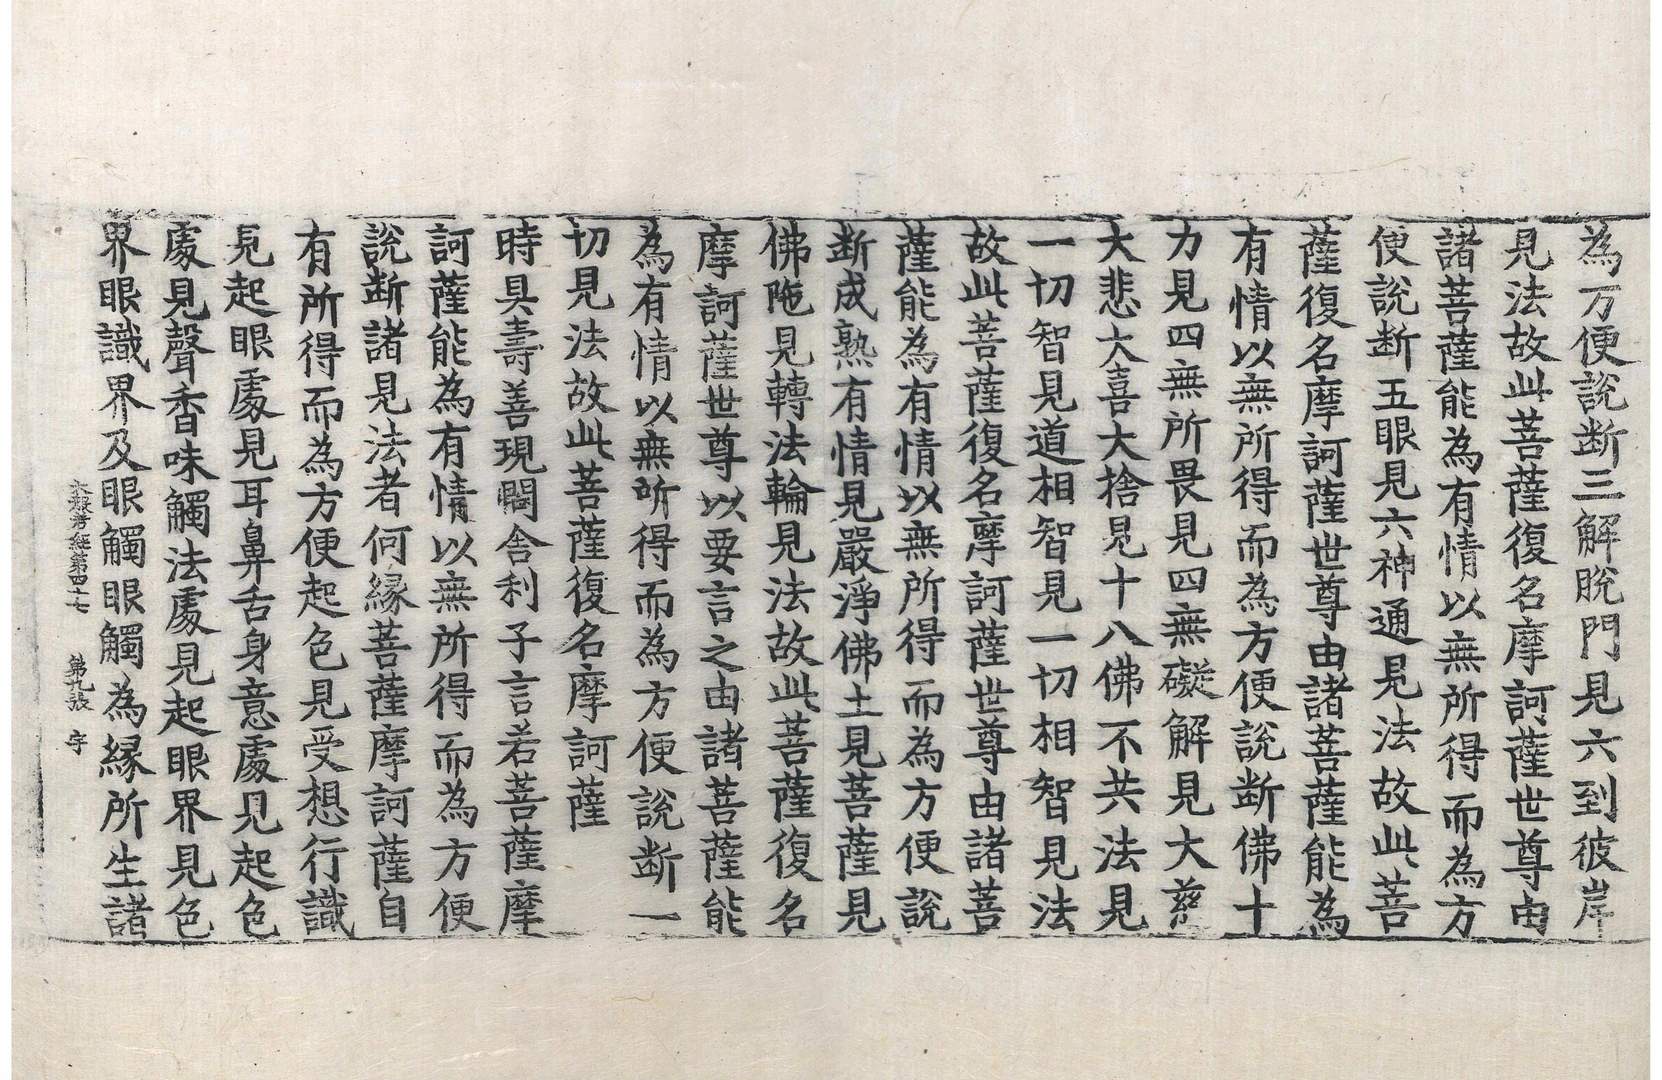 為方便說断三解脫門見六到彼岸
見法故此菩薩復名摩訶薩世尊由
諸菩薩能為有情以無所得而為方
便說断五眼見六神通見法故此菩
薩復名摩訶薩世尊由諸菩薩能為
有情以無所得而為方便說断佛十
力見四無所畏見四無礙解見大慈
大悲大喜大捨見十八佛不共法見
一切智見道相智見一切相智見法
故此菩薩復名摩訶薩世尊由諸菩
薩能為有情以無所得而為方便說
断成熟有情見嚴淨佛土見菩薩見
佛陁見轉法輪見法故此菩薩復名
摩訶薩世尊以要言之由諸菩薩能
為有情以無所得而為方便說断一
切見法故此菩薩復名摩訶薩
時具壽善現問舍利子言若菩薩摩
訶薩能為有情以無所得而為方便
說断諸見法者何緣菩薩摩訶薩自
有所得而為方便起色見受想行識
見起眼處見耳鼻舌身意處見起色
處見聲香味觸法處見起眼界見色
界眼識界及眼觸眼觸為緣所生諸
大般若經第四十七 第九張 字